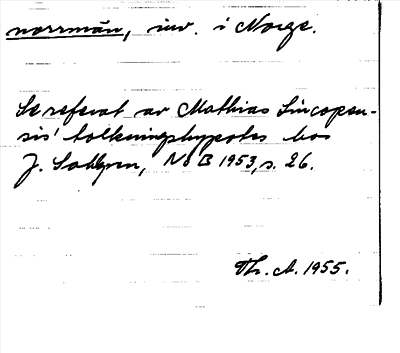 norrmän, inv. i Norge.
Se referat av Mathias Lincopen-
sis' tolkningshypotes hos
J. Sahlgren, NoB 1953, s. 26.
Th. A. 1955.